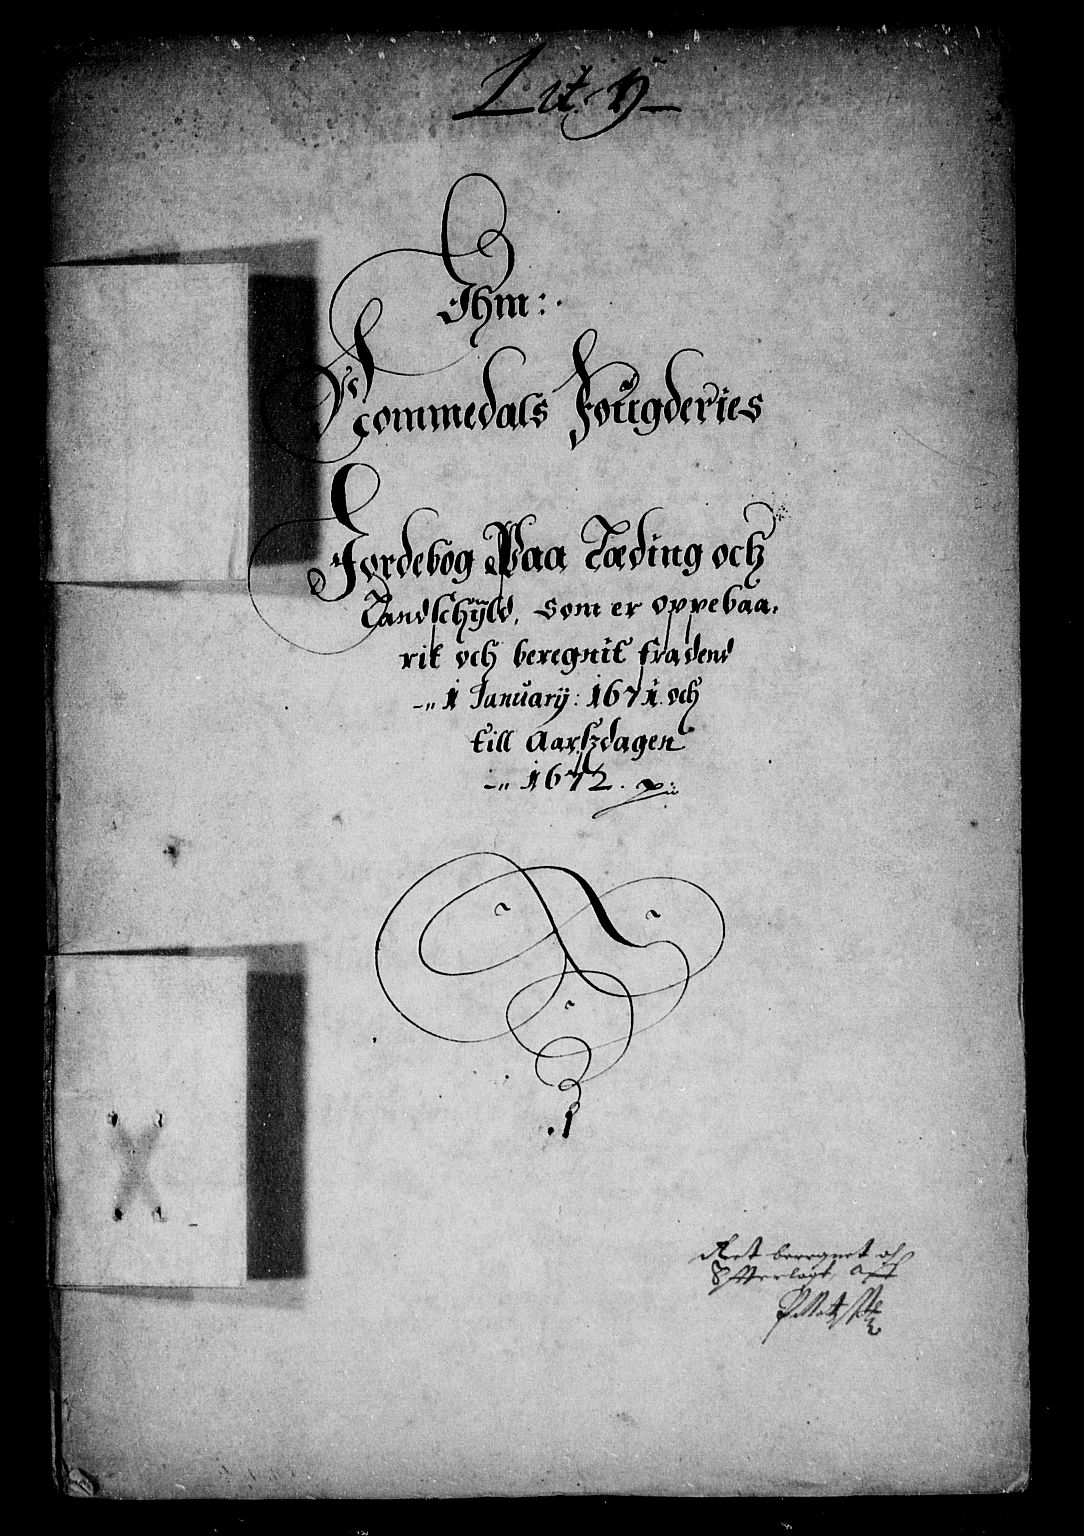 Lit. D
Ihm:
Rommedals Fougderies
Jordebog Paa Læding och
Landschÿld, som er oppebaa,
rit och beregnit fra dend
1 Januarÿ: 1671. och
till Aarszdagen
1672.
1
Ret beregnet oh
Efterlagt aff